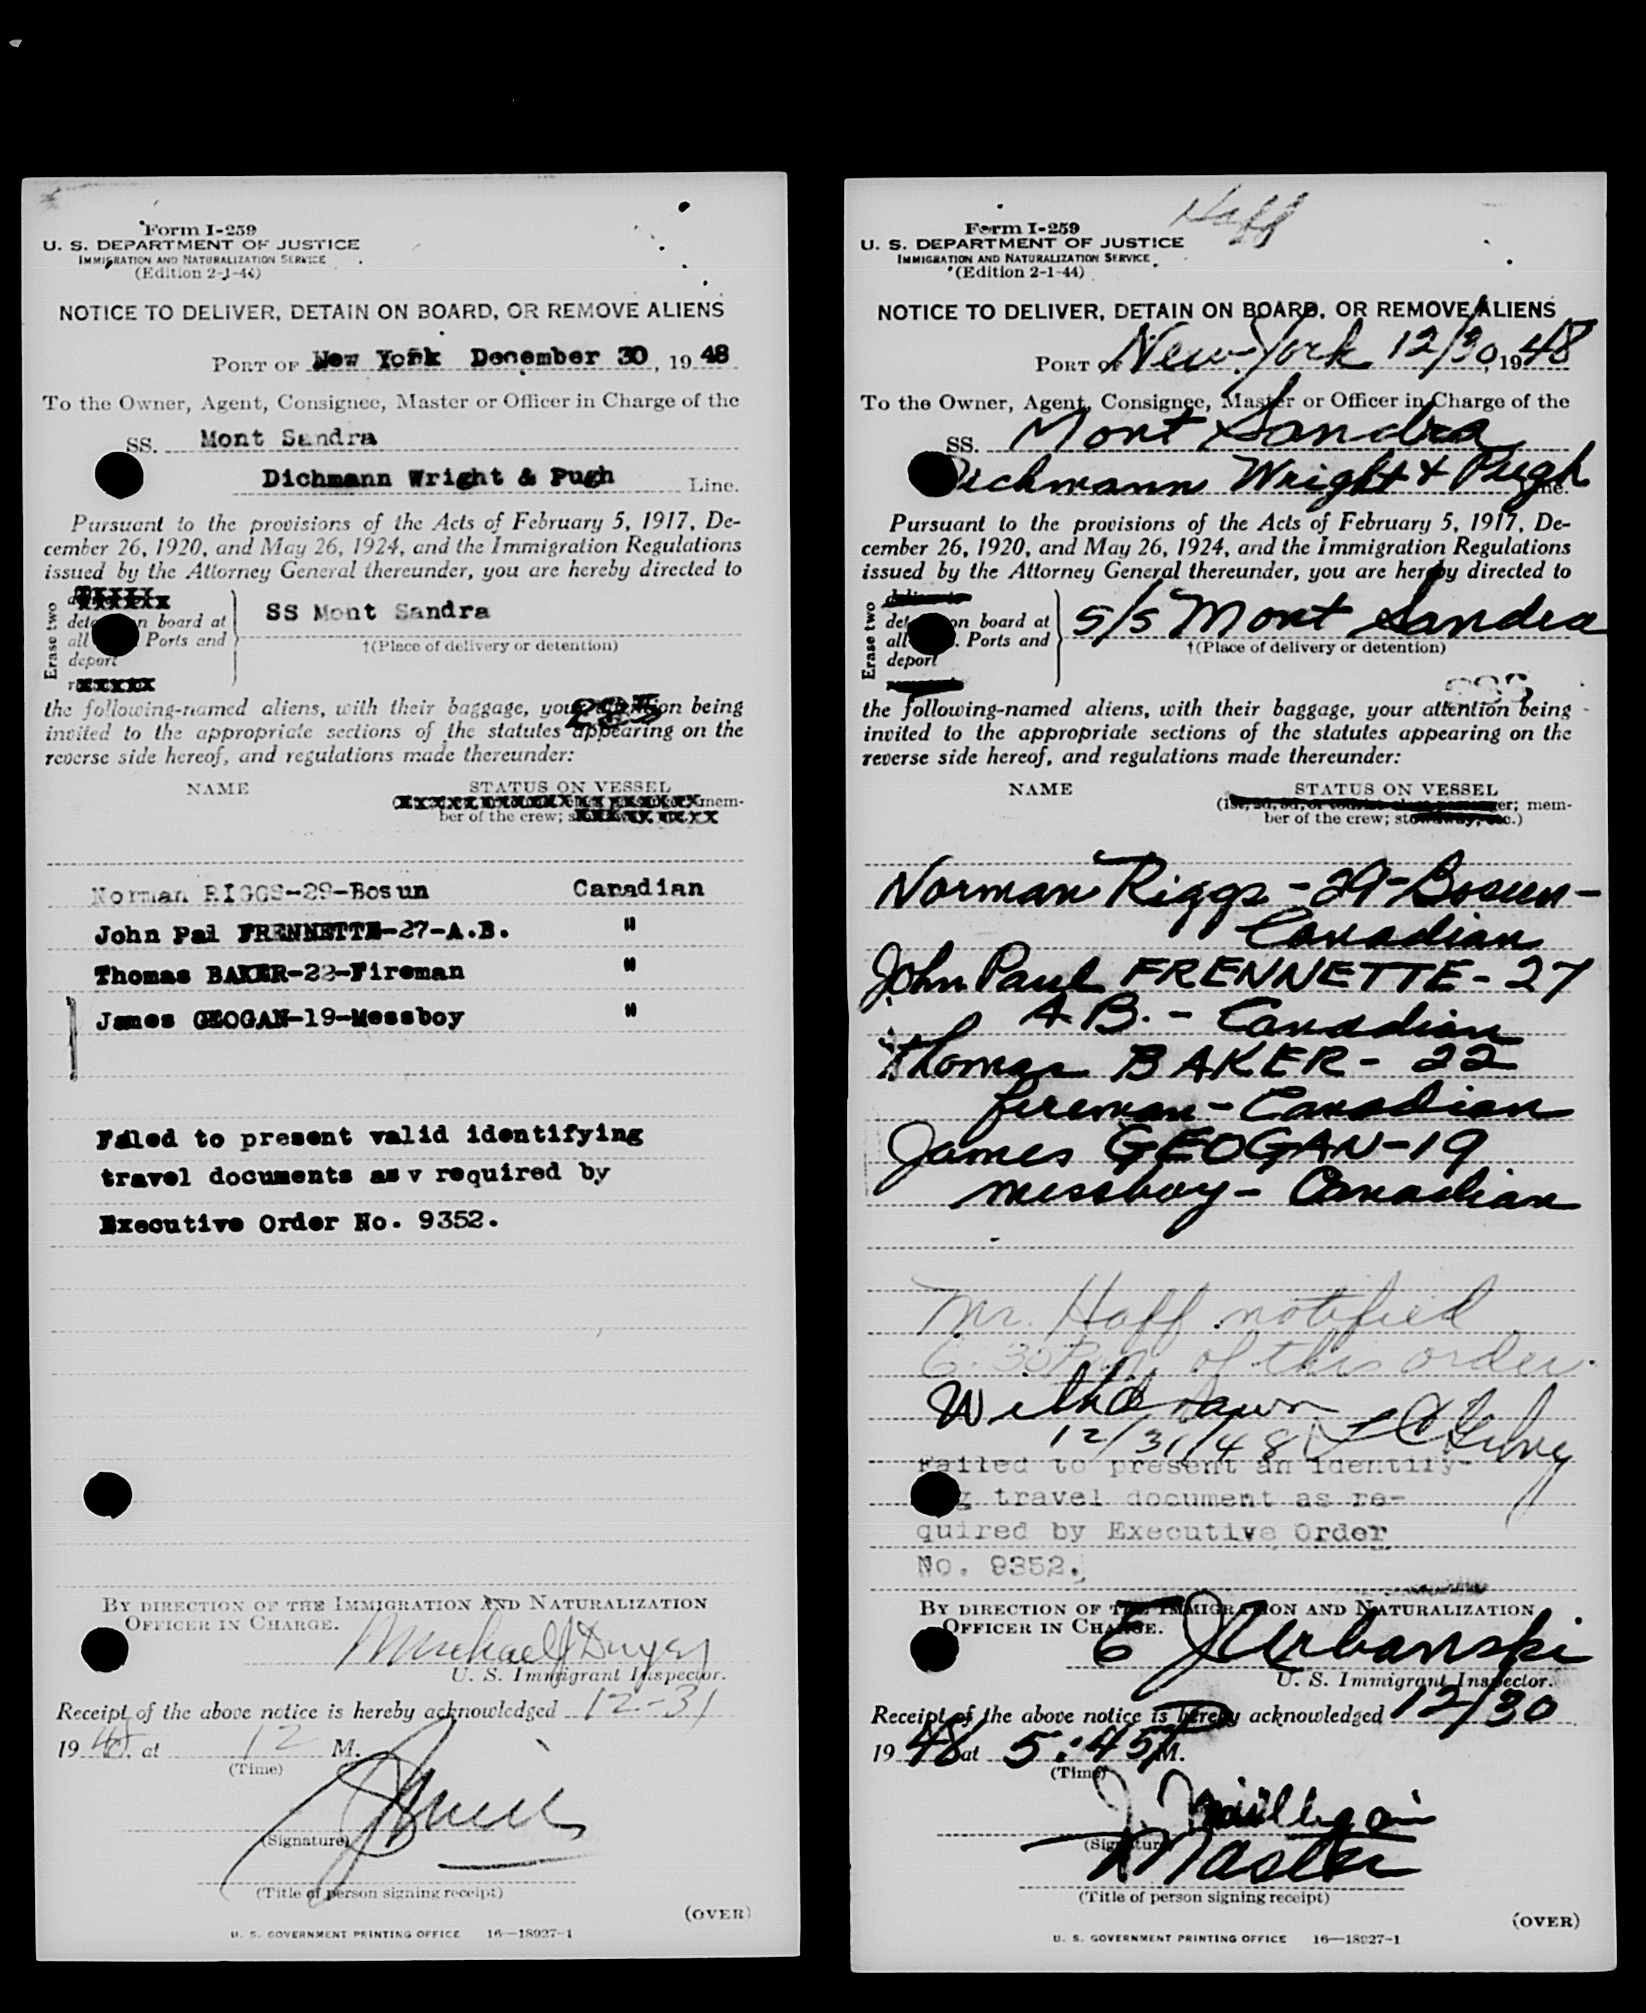 Form I-259
U. S. DEPARTMENT OF JUSTICE
IMMIGRATION AND NATURALIZATION SERVICE
(Edition 2-1-44)
NOTICE TO DELIVER, DETAIN ON BOARD, OR REMOVE ALIENS
PORT OF New York December 30, 19 48
To the Owner, Agent, Consignee, Master or Officer in Charge of the
SS. Mont Sandra
Dichmann Wright & Pugh Line.
Pursuant to the provisions of the Acts of February 5, 1917, De-
cember 26, 1920, and May 26, 1924, and the Immigration Regulations
issued by the Attorney General thereunder, you are hereby directed to
Erase two
on board at
all Ports and
deport
SS Mont Sandra
†(Place of delivery or detention)
the following-named aliens, with their baggage, your being
invited to the appropriate sections of the statutes appearing on the
reverse side hereof, and regulations made thereunder:
NAME STATUS ON VESSEL
mem-
ber of the crew;
Norman RIGGS-29-Bosun Canadian
John Pal FRENNETTE-27-A.B. "
Thomas BAKER-22-Fireman "
James GEOGAN-19-Messboy "
Faled to present valid identifying
travel documents as v required by
Executive Order No. 9352.
BY DIRECTION OF THE IMMIGRATION AND NATURALIZATION
OFFICER IN CHARGE.
Michael J Dwyer
U. S. Immigrant Inspector.
Receipt of the above notice is hereby acknowledged 12-31
19 48, at 12 M.
(Time)
(Signature)
(Title of person signing receipt)
(OVER)
U. S. GOVERNMENT PRINTING OFFICE 16—18927-1
Haff
Form I-259
U. S. DEPARTMENT OF JUSTICE
IMMIGRATION AND NATURALIZATION SERVICE
(Edition 2-1-44)
NOTICE TO DELIVER, DETAIN ON BOARD, OR REMOVE ALIENS
PORT OF New York 12/30, 19 48
To the Owner, Agent, Consignee, Master or Officer in Charge of the
SS. Mont Sandra
Dichmann Wright & Pugh
Pursuant to the provisions of the Acts of February 5, 1917, De-
cember 26, 1920, and May 26, 1924, and the Immigration Regulations
issued by the Attorney General thereunder, you are hereby directed to
Erase two
on board at
all Ports and
deport
S/S Mont Sandra
†(Place of delivery or detention)
the following-named aliens, with their baggage, your attention being
invited to the appropriate sections of the statutes appearing on the
reverse side hereof, and regulations made thereunder:
NAME STATUS ON VESSEL
mem-
ber of the crew;
Norman Riggs - 29 - Bosun -
Canadian
John Paul FRENNETTE - 27
A B. - Canadian
Thomas BAKER - 22
fireman - Canadian
James GEOGAN - 19
messboy - Canadian
Mr. Haff notified
6:30 P.M. of this order.
Withdrawn
12/31/48
Failed to present an identify-
travel document as re-
quired by Executive Order
No. 9352.
BY DIRECTION OF THE IMMIGRATION AND NATURALIZATION
OFFICER IN CHARGE.
E J Urbanski
U. S. Immigrant Inspector.
Receipt of the above notice is hereby acknowledged 12/30
19 48 at 5:45 P M.
(Time)
J. Mulligan
(Signature)
Master
(Title of person signing receipt)
(OVER)
U. S. GOVERNMENT PRINTING OFFICE 16—18927-1